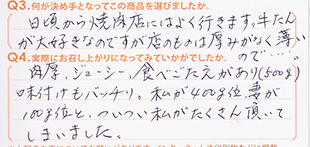 Q3.何が決め手となってこの商品を選びましたか。
日頃から焼肉店にはよく行きます。牛たん
が大好きなのですが店のものは厚みがなく薄い
Q4.実際にお召し上がりになってみていかがでしたか。
ので……
肉厚、ジューシー、食べごたえがあり(500g)
味付けもバッチリ。私が400g位、妻が
100g位と、ついつい私がたくさん頂いて
しまいました。